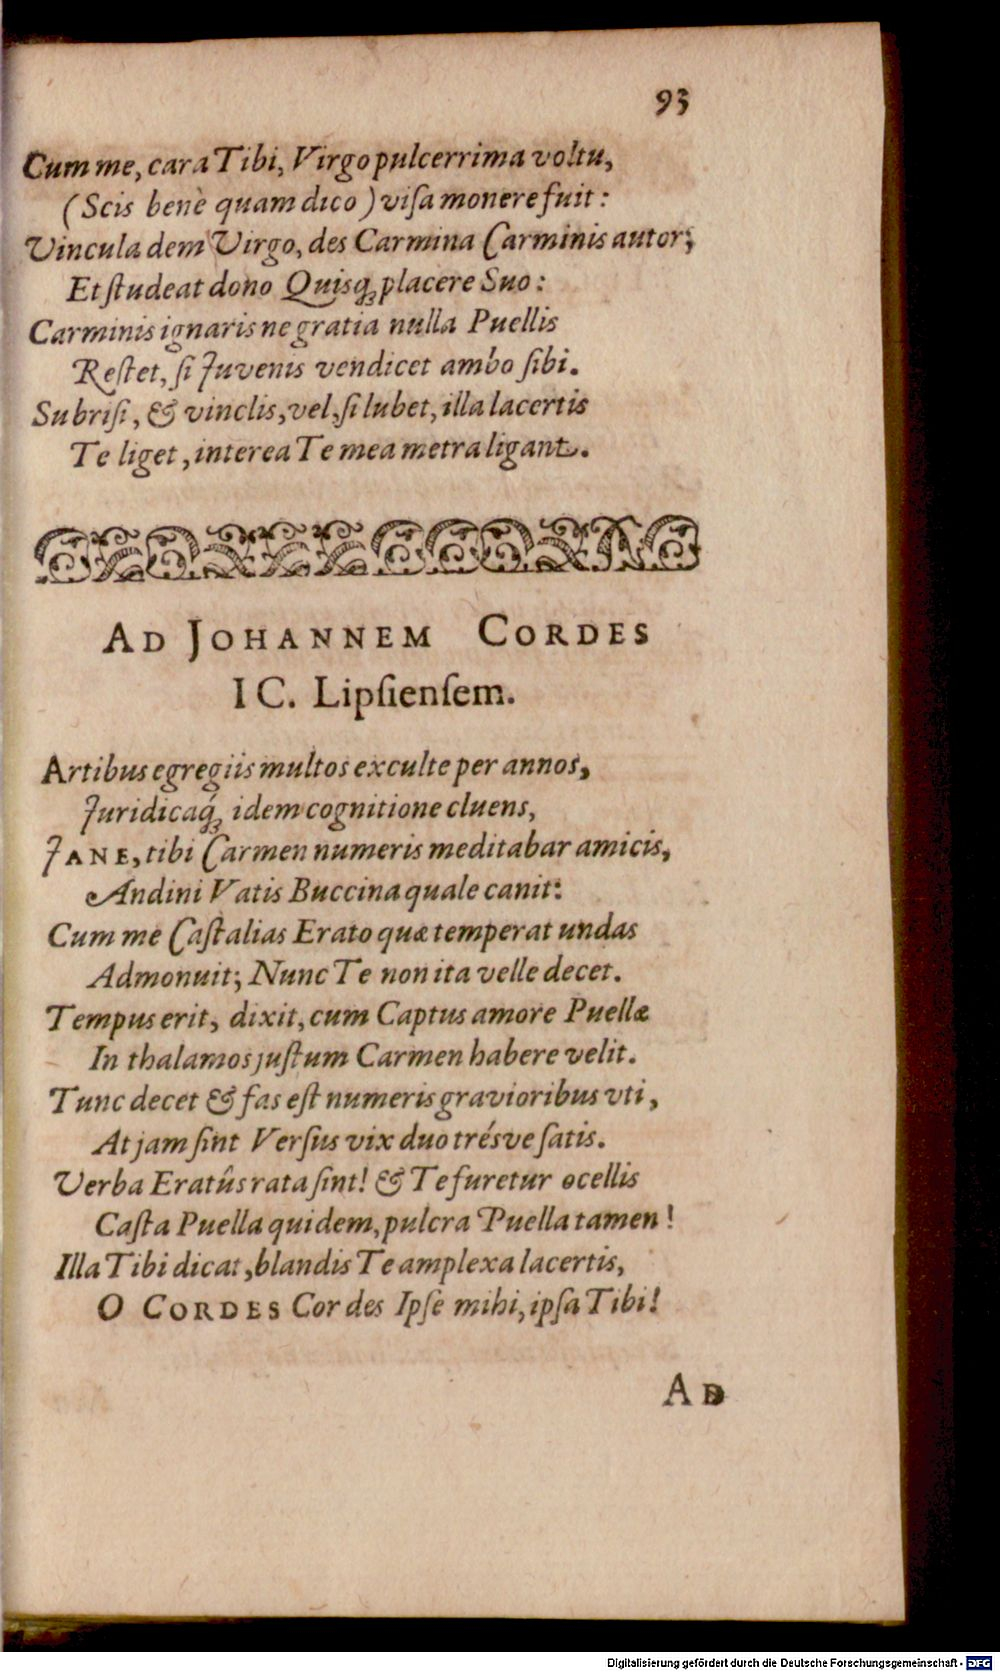 93
Cum me, cara Tibi, Virgo pulcerrima voltu,
(Scis benè quam dico) visa monere fuit:
Vincula dem Virgo, des Carmina Carminis autor;
Et studeat dono Quisq; placere Suo:
Carminis ignaris ne gratia nulla Puellis
Restet, si Juvenis vendicet ambo sibi.
Subrisi, & vinclis, vel, si lubet, illa lacertis
Te liget, interea Te mea metra ligant.
AD JOHANNEM CORDES
IC. Lipsiensem.
Artibus egregiis multos exculte per annos,
Juridicáq; idem cognitione cluens,
JANE, tibi Carmen numeris meditabar amicis,
Andini Vatis Buccina quale canit:
Cum me Castalias Erato quæ temperat undas
Admonuit; Nunc Te non ita velle decet.
Tempus erit, dixit, cum Captus amore Puellæ
In thalamos justum Carmen habere velit.
Tunc decet & fas est numeris gravioribus vti,
At jam sint Versus vix duo trésve satis.
Verba Eratûs rata sint! & Te furetur ocellis
Casta Puella quidem, pulcra Puella tamen!
Illa Tibi dicat, blandis Te amplexa lacertis,
O CORDES Cor des Ipse mihi, ipsa Tibi!
AD
Digitalisierung gefördert durch die Deutsche Forschungsgemeinschaft - DFG